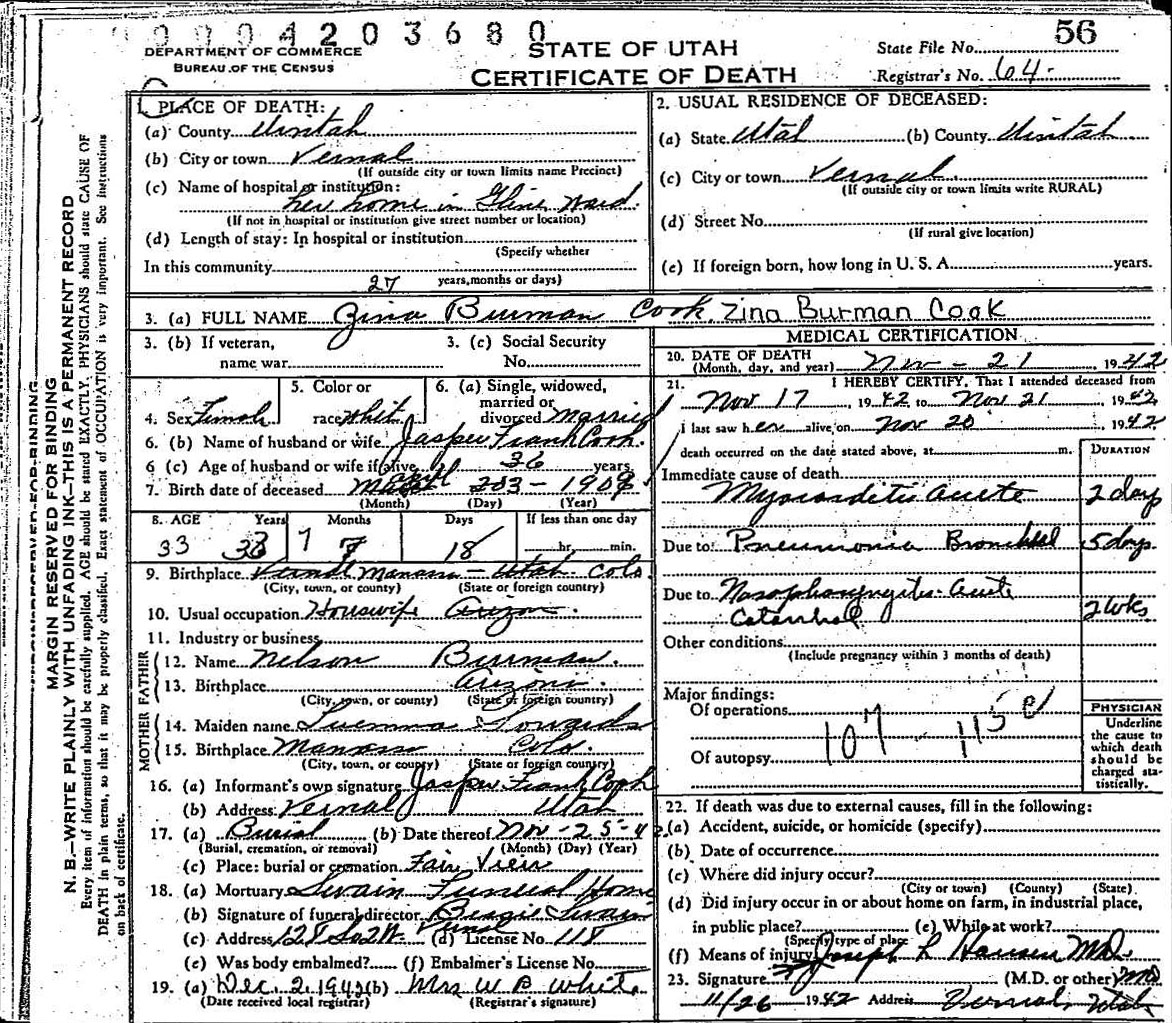 0004203680
DEPARTMENT OF COMMERCE
BUREAU OF THE CENSUS
STATE OF UTAH
CERTIFICATE OF DEATH
State File No. 56
Registrar's No. 64
MARGIN RESERVED FOR BINDING
N. B.—WRITE PLAINLY WITH UNFADING INK—THIS IS A PERMANENT RECORD
Every item of information should be carefully supplied. AGE should be stated EXACTLY, PHYSICIANS should state CAUSE OF
DEATH in plain terms, so that it may be properly classified. Exact statement of OCCUPATION is very important. See instructions
on back of certificate.
1. PLACE OF DEATH:
(a) County Uintah
(b) City or town Vernal
(If outside city or town limits name Precinct)
(c) Name of hospital or institution:
her home in Gline Ward
(If not in hospital or institution give street number or location)
(d) Length of stay: In hospital or institution
(Specify whether
In this community
27 years, months or days)
2. USUAL RESIDENCE OF DECEASED:
(a) State Utah (b) County Uintah
(c) City or town Vernal
(If outside city or town limits write RURAL)
(d) Street No.
(If rural give location)
(e) If foreign born, how long in U. S. A. years.
3. (a) FULL NAME Zina Burman Cook, Zina Burman Cook
3. (b) If veteran, name war
3. (c) Social Security No.
4. Sex Female
5. Color or race White
6. (a) Single, widowed, married or divorced Married
6. (b) Name of husband or wife Jasper Frank Cook
6 (c) Age of husband or wife if alive 36 years
7. Birth date of deceased April 3 - 1909
(Month) (Day) (Year)
8. AGE Years Months Days If less than one day
33 33 7 7 18 hr. min.
9. Birthplace Vernal Manassa - Utah Colo.
(City, town, or county) (State or foreign country)
10. Usual occupation Housewife
11. Industry or business
FATHER
12. Name Nelson Burman
13. Birthplace Arizona
(City, town, or county) (State or foreign country)
MOTHER
14. Maiden name
15. Birthplace Manassa Colo.
(City, town, or county) (State or foreign country)
16. (a) Informant's own signature Jasper Frank Cook
(b) Address Vernal Utah
17. (a) Burial (b) Date thereof Nov-25-42
(Burial, cremation, or removal) (Month) (Day) (Year)
(c) Place: burial or cremation Fair View
18. (a) Mortuary Swain Funeral Home
(b) Signature of funeral director Swain
(c) Address 128 So 2 W. Vernal (d) License No. 118
(e) Was body embalmed? (f) Embalmer's License No.
19. (a) Dec. 2. 1942 (b) Mrs W B White
(Date received local registrar) (Registrar's signature)
MEDICAL CERTIFICATION
20. DATE OF DEATH
(Month, day, and year) Nov - 21 1942
21. I HEREBY CERTIFY, That I attended deceased from
Nov 17, 1942 to Nov 21, 1942
I last saw her alive on Nov 20 1942
death occurred on the date stated above, at m.
DURATION
Immediate cause of death
Myocarditis acute 2 days
Due to Pneumonia Bronchial 5 days
Due to Nasopharyngitis Acute
Catarrhal 2 wks
Other conditions
(Include pregnancy within 3 months of death)
Major findings:
Of operations
107 - 115
Of autopsy
PHYSICIAN
Underline
the cause to
which death
should be
charged sta-
tistically.
22. If death was due to external causes, fill in the following:
(a) Accident, suicide, or homicide (specify)
(b) Date of occurrence
(c) Where did injury occur?
(City or town) (County) (State)
(d) Did injury occur in or about home on farm, in industrial place,
in public place? (e) While at work?
(Specify type of place
(f) Means of injury
23. Signature Joseph L Hansen MD (M.D. or other) MD
11/26 1942 Address Vernal, Utah